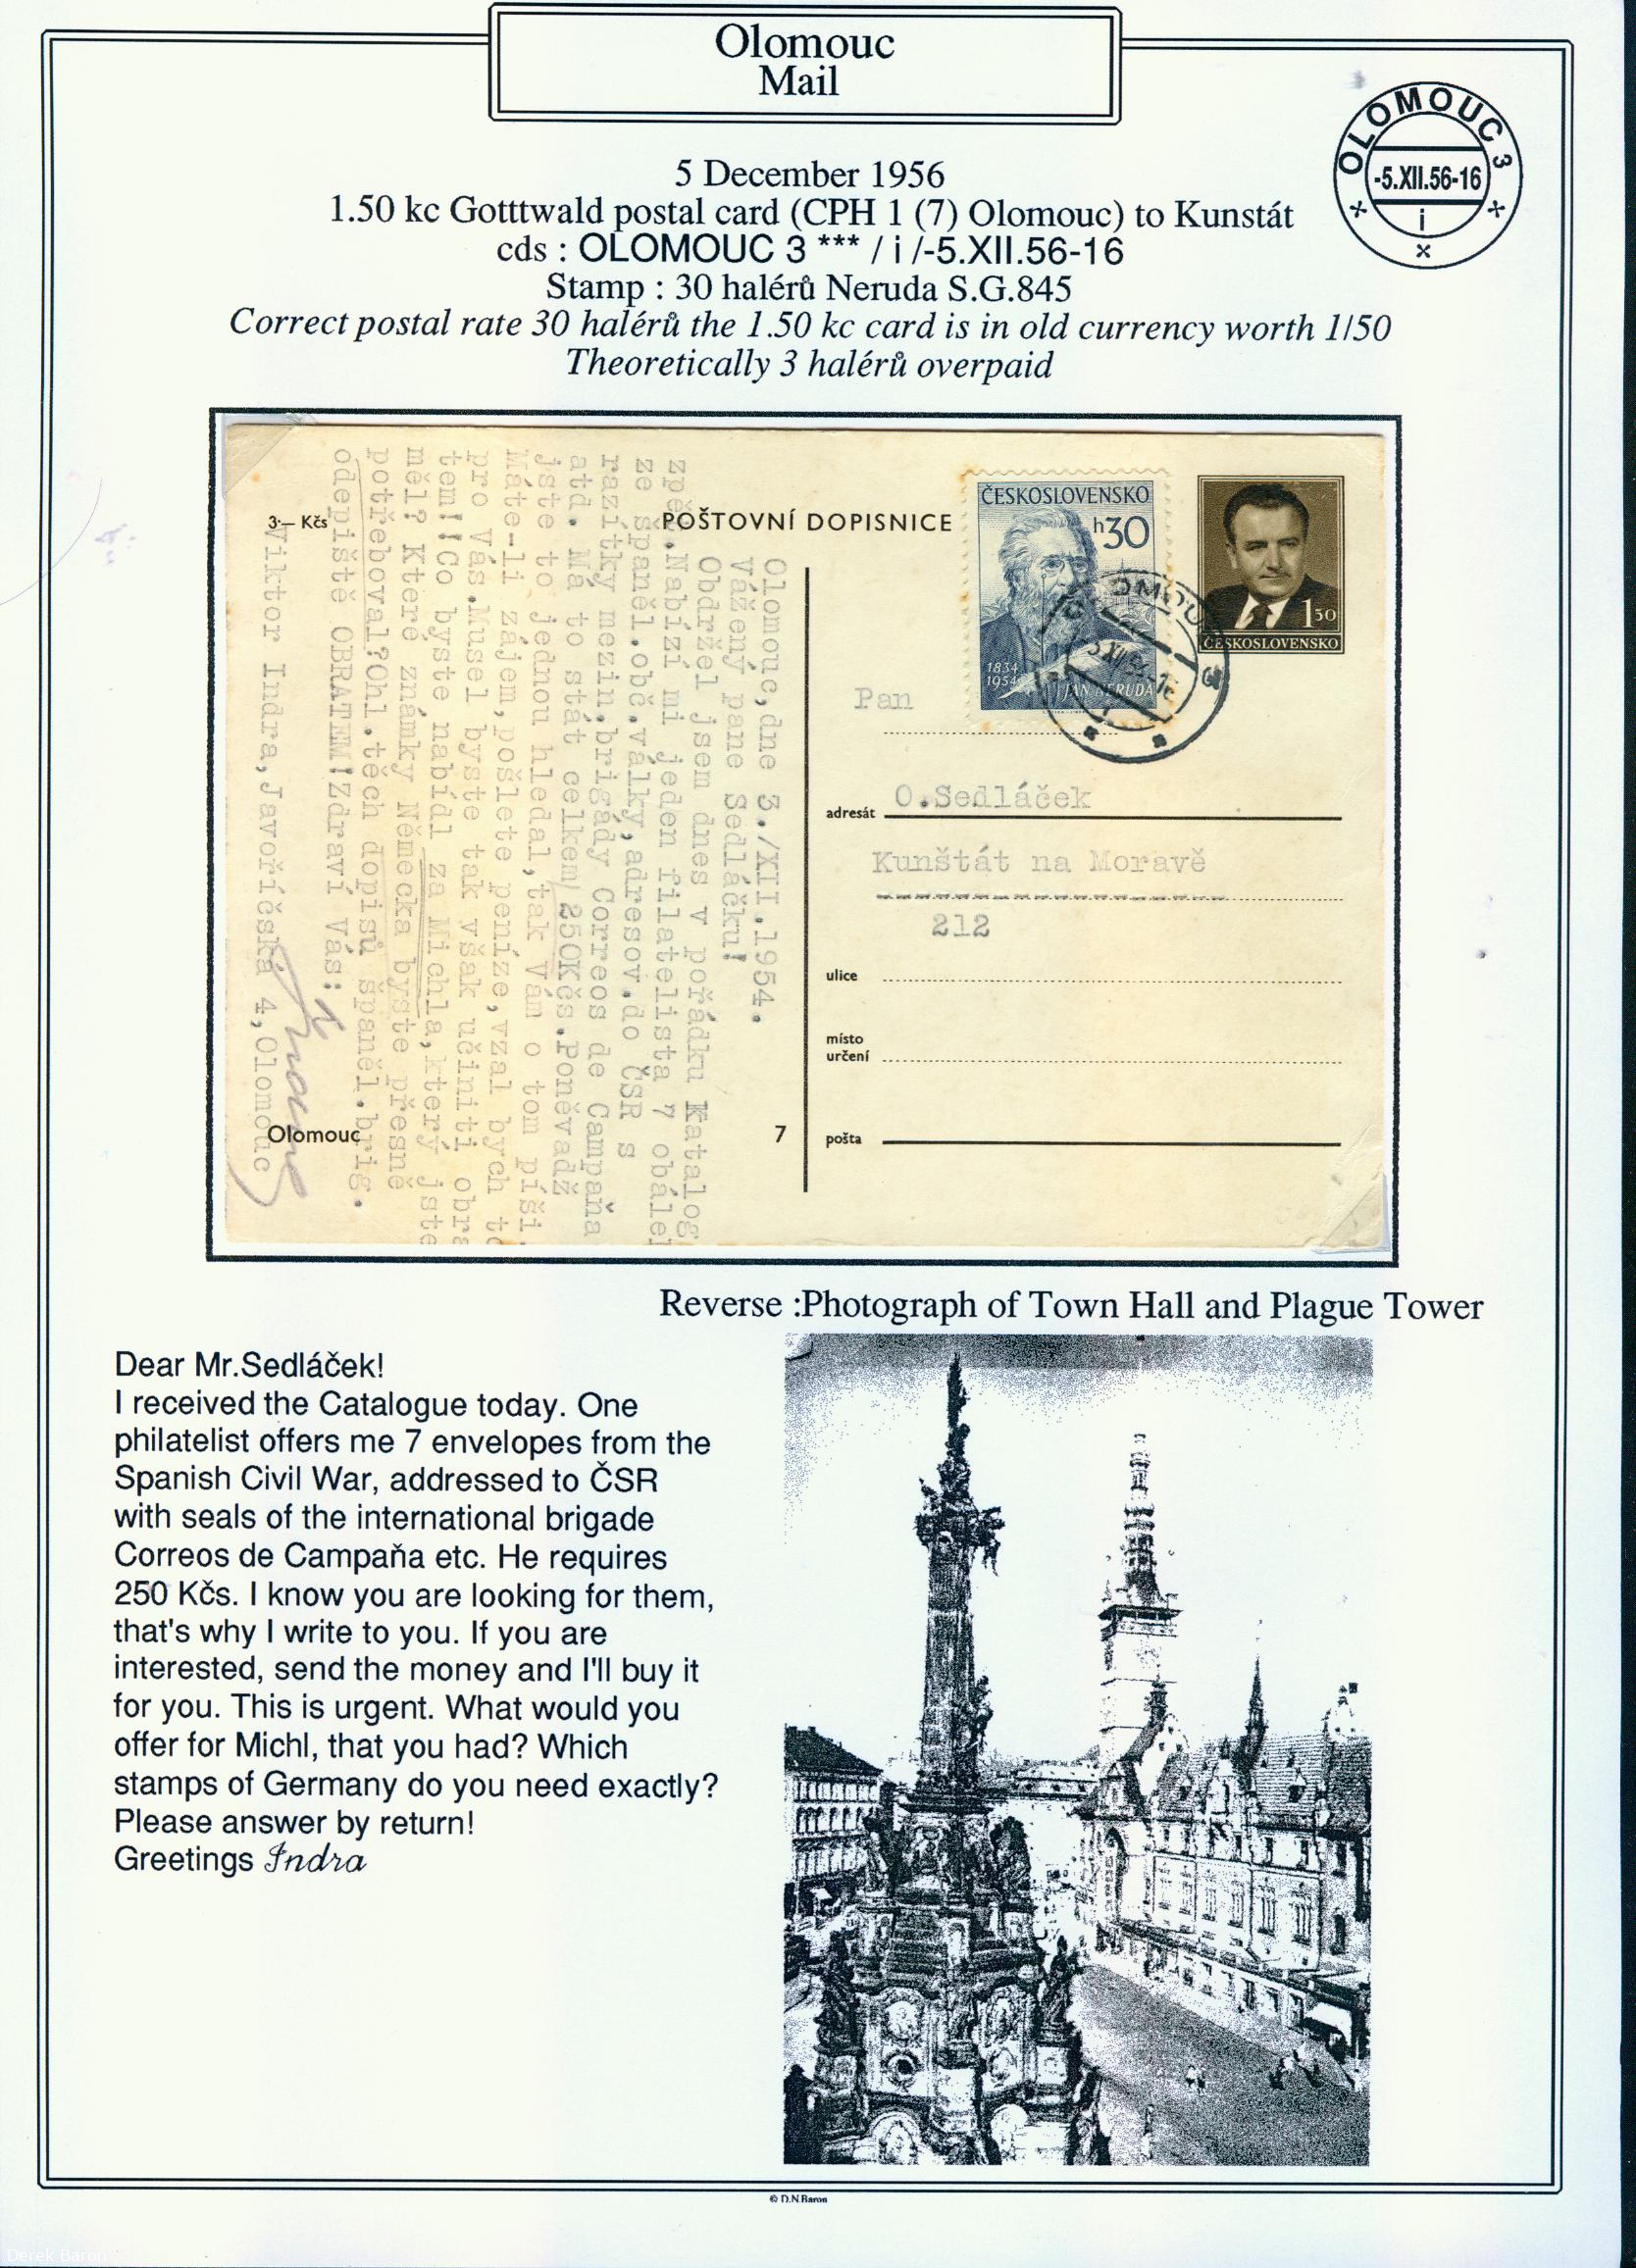 Olomouc
Mail
OLOMOUC 3
-5.XII.56-16
i
5 December 1956
1.50 kc Gotttwald postal card (CPH 1 (7) Olomouc) to Kunstát
cds : OLOMOUC 3 *** / i /-5.XII.56-16
Stamp : 30 halérů Neruda S.G.845
Correct postal rate 30 halérů the 1.50 kc card is in old currency worth 1/50
Theoretically 3 halérů overpaid
3·— Kčs
POŠTOVNÍ DOPISNICE
ČESKOSLOVENSKO
h30
1834
1954
JAN NERUDA
1 50
ČESKOSLOVENSKO
Olomouc,dne 3./XII.1954.
Vážený pane Sedláčku!
Obdržel jsem dnes v pořádku Katalog
zpět.Nabízí mi jeden filatelista 7 obále
ze španěl.obč.války,adresov.do ČSR s
razítky mezin.brigády Correos de Campaňa
atd. Má to stát celkem 250Kčs.Poněvadž
jste to jednou hledal,tak Vám o tom píši.
Máte-li zájem,pošlete peníze,vzal bych to
pro Vás.Musel byste tak však učiniti obra
tem!!Co byste nabídl za Michla,který jste
měl? Které známky Německa byste přesně
potřeboval?Ohl.těch dopisů španěl.brig.
odepiště OBRATEM!Zdraví Vás:
Viktor Indra,Javoříčská 4,Olomouc
Olomouc
7
Pan
adresát
O.Sedláček
Kunštát na Moravě
212
ulice
místo
určení
pošta
Reverse :Photograph of Town Hall and Plague Tower
Dear Mr.Sedláček!
I received the Catalogue today. One
philatelist offers me 7 envelopes from the
Spanish Civil War, addressed to ČSR
with seals of the international brigade
Correos de Campaňa etc. He requires
250 Kčs. I know you are looking for them,
that's why I write to you. If you are
interested, send the money and I'll buy it
for you. This is urgent. What would you
offer for Michl, that you had? Which
stamps of Germany do you need exactly?
Please answer by return!
Greetings Indra
© D.N.Baron
Derek Baron